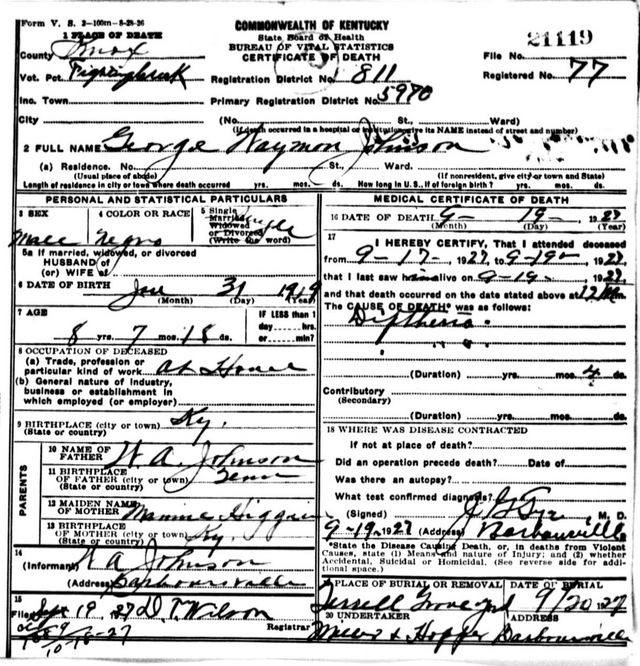 Form V. S. 2-100m-8-28-26
COMMONWEALTH OF KENTUCKY
State Board of Health
BUREAU OF VITAL STATISTICS
CERTIFICATE OF DEATH
1 PLACE OF DEATH
County Knox
File No. 21119
Vot. Pct.
Registration District No. 811
Registered No. 77
Inc. Town
Primary Registration District No. 5970
City (No. St., Ward)
(If death occurred in a hospital or institution give its NAME instead of street and number)
2 FULL NAME George Waymon Johnson
(a) Residence. No. St., Ward.
(Usual place of abode) (If nonresident, give city or town and State)
Length of residence in city or town where death occurred yrs. mos. ds. How long in U. S., if of foreign birth? yrs. mos. ds.
PERSONAL AND STATISTICAL PARTICULARS
3 SEX
Male
4 COLOR OR RACE
Negro
5 Single
Married
Widowed
or Divorced
(Write the word)
Single
5a If married, widowed, or divorced
HUSBAND of
(or) WIFE of
6 DATE OF BIRTH Jan 31 1919
(Month) (Day) (Year)
7 AGE
8 yrs. 7 mos. 18 ds.
IF LESS than 1
day hrs.
or min?
8 OCCUPATION OF DECEASED
(a) Trade, profession or
particular kind of work at Home
(b) General nature of Industry,
business or establishment in
which employed (or employer)
9 BIRTHPLACE (city or town) Ky.
(State or country)
PARENTS
10 NAME OF
FATHER W A Johnson
11 BIRTHPLACE
OF FATHER (city or town) Tenn
(State or country)
12 MAIDEN NAME
OF MOTHER Mamie
13 BIRTHPLACE
OF MOTHER (city or town) Ky.
(State or country)
14
(Informant) W A Johnson
(Address) Barbourville
15
Filed Sept 19, 27 D. T. Wilson
Registrar
10-16-27
MEDICAL CERTIFICATE OF DEATH
16 DATE OF DEATH 9- 19- 1927
(Month) (Day) (Year)
17
I HEREBY CERTIFY, That I attended deceased
from 9-17-, 1927, to 9-19-, 1927,
that I last saw him alive on 9-19-, 1927,
and that death occurred on the date stated above at 12 m.
The CAUSE OF DEATH* was as follows:
Diptheria
(Duration) yrs. mos. 4 ds.
Contributory
(Secondary)
(Duration) yrs. mos. ds.
18 WHERE WAS DISEASE CONTRACTED
If not at place of death?
Did an operation precede death? Date of
Was there an autopsy?
What test confirmed diagnosis?
(Signed) M. D.
9-19-1927 (Address) Barbourville
*State the Disease Causing Death, or, in deaths from Violent
Causes, state (1) Means and nature of Injury; and (2) whether
Accidental, Suicidal or Homicidal. (See reverse side for addi-
tional space.)
19 PLACE OF BURIAL OR REMOVAL
Terrell Grove yd
DATE OF BURIAL
9/20 1927
20 UNDERTAKER
& Hopper
ADDRESS
Barbourville